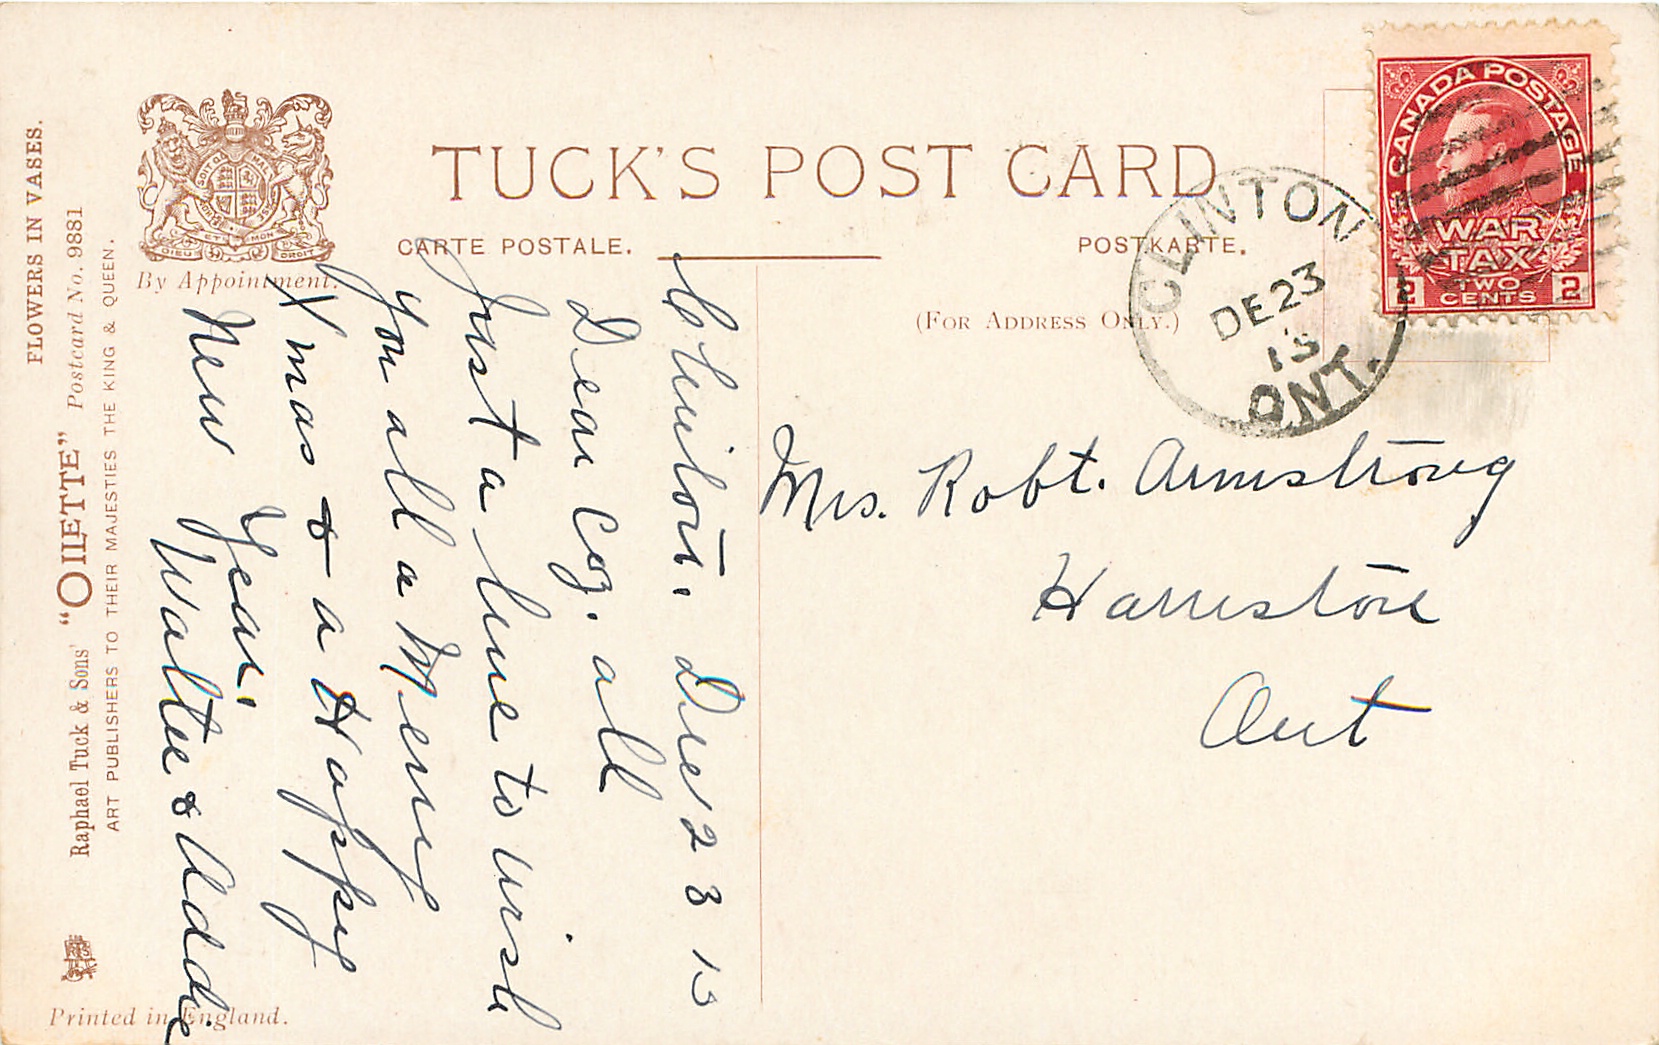 FLOWERS IN VASES.
Raphael Tuck & Sons' "OILETTE" Postcard No. 9881
ART PUBLISHERS TO THEIR MAJESTIES THE KING & QUEEN.
By Appointment.
DIEU ET MON DROIT
TUCK'S POST CARD
CARTE POSTALE.
POSTKARTE.
(FOR ADDRESS ONLY.)
CANADA POSTAGE
WAR
TAX
2 TWO CENTS 2
CLINTON
DE 23
15
ONT.
Clinton. Dec 23 15
Dear Coz. all
Just a line to wish
you all a Merry
Xmas & a Happy
New Year.
Walter & Addie
Mrs. Robt. Armstrong
Harriston
Ont
Printed in England.